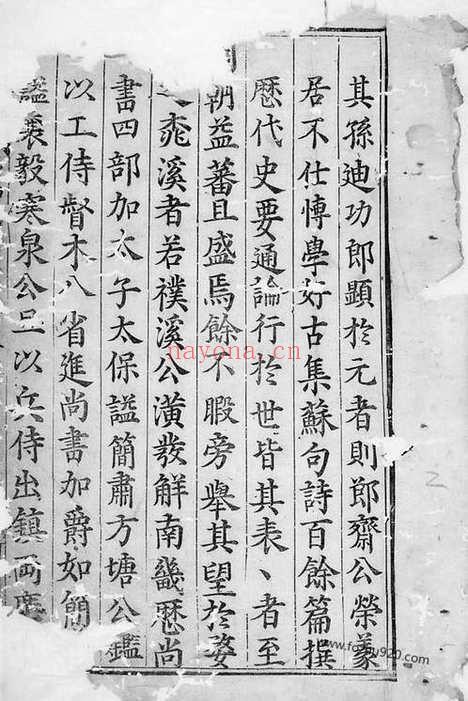 其孫迪功郎顯於元者則郎齋公榮
居不仕博學好古集蘇句詩百餘篇撰
歷代史要通論行於世皆其表丶者至
朝益蕃且盛焉餘不暇旁舉其望於婺
桃溪者若樸溪公潢發解南畿歷尚
書四部加太子太保謚簡肅方塘公鑑
以工侍督木八省進尚書加爵如簡
謚襄毅寒泉公旦以兵侍出鎮両廣
nayona.cn